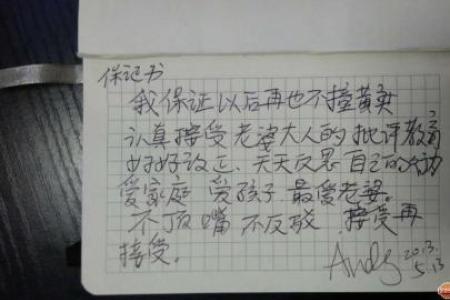 保证书
我保证以后再也不撞黄灯
认真接受老婆大人的批评教育
好好改正、天天反思自己的行动
爱家庭 爱孩子 最爱老婆。
不顶嘴 不反驳 接受再
接受。
Andy 2013.
5.13